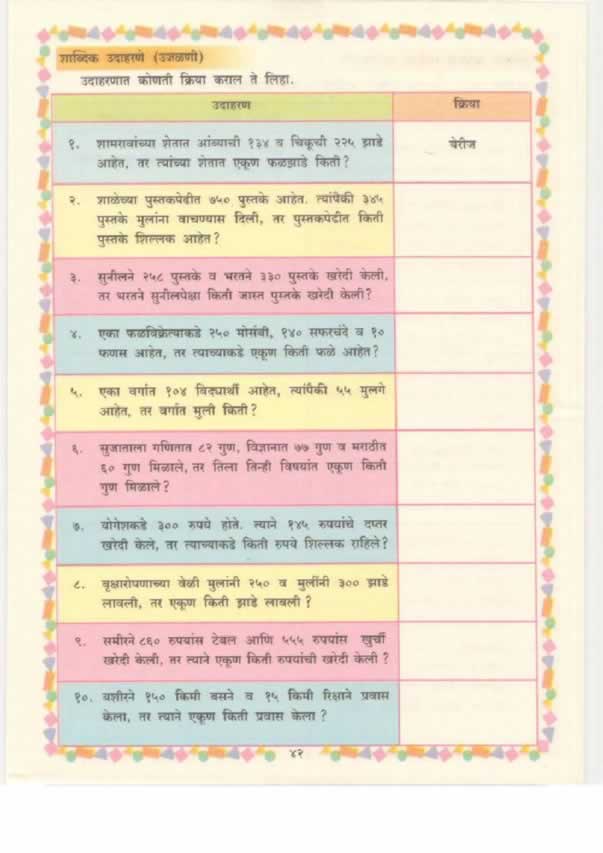 शाब्दिक उदाहरणे (उजळणी)
उदाहरणात कोणती क्रिया कराल ते लिहा.
उदाहरण
क्रिया
१. शामरावांच्या शेतात आंब्याची १३४ व चिकूची २२५ झाडे
आहेत, तर त्यांच्या शेतात एकूण फळझाडे किती?
बेरीज
२. शाळेच्या पुस्तकपेढीत ७५० पुस्तके आहेत. त्यांपैकी ३४५
पुस्तके मुलांना वाचण्यास दिली, तर पुस्तकपेढीत किती
पुस्तके शिल्लक आहेत?
३. सुनीलने २५८ पुस्तके व भरतने ३३० पुस्तके खरेदी केली,
तर भरतने सुनीलपेक्षा किती जास्त पुस्तके खरेदी केली?
४. एका फळविक्रेत्याकडे २५० मोसंबी, १४० सफरचंदे व १०
फणस आहेत, तर त्याच्याकडे एकूण किती फळे आहेत?
५. एका वर्गात १०४ विद्यार्थी आहेत, त्यांपैकी ५५ मुलगे
आहेत, तर वर्गात मुली किती?
६. सुजाताला गणितात ८२ गुण, विज्ञानात ७७ गुण व मराठीत
६० गुण मिळाले, तर तिला तिन्ही विषयांत एकूण किती
गुण मिळाले?
७. योगेशकडे ३०० रुपये होते. त्याने १४५ रुपयांचे दप्तर
खरेदी केले, तर त्याच्याकडे किती रुपये शिल्लक राहिले?
८. वृक्षारोपणाच्या वेळी मुलांनी २५० व मुलींनी ३०० झाडे
लावली, तर एकूण किती झाडे लावली ?
९. समीरने ८६० रुपयांस टेबल आणि ५५५ रुपयांस खुर्ची
खरेदी केली, तर त्याने एकूण किती रुपयांची खरेदी केली ?
१०. यशीरने १५० किमी बसने व १५ किमी रिक्षाने प्रवास
केला, तर त्याने एकूण किती प्रवास केला ?
४२